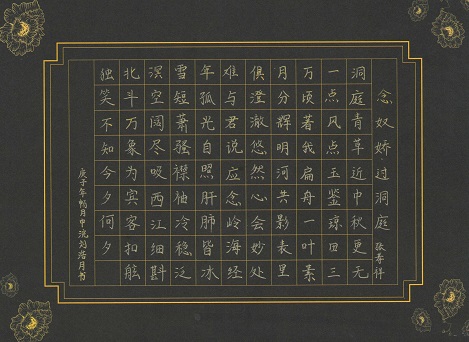 念奴娇过洞庭 张孝祥
洞庭青草近中秋更无
一点风点玉鉴琼田三
万顷著我扁舟一叶素
月分辉明河共影表里
俱澄澈悠然心会妙处
难与君说应念岭海经
年孤光自照肝肺皆冰
雪短萧骚襟袖冷稳泛
溟空阔尽吸西江细斟
北斗万象为宾客扣舷
独笑不知今夕何夕
庚子年畅月中浣刘浩月书